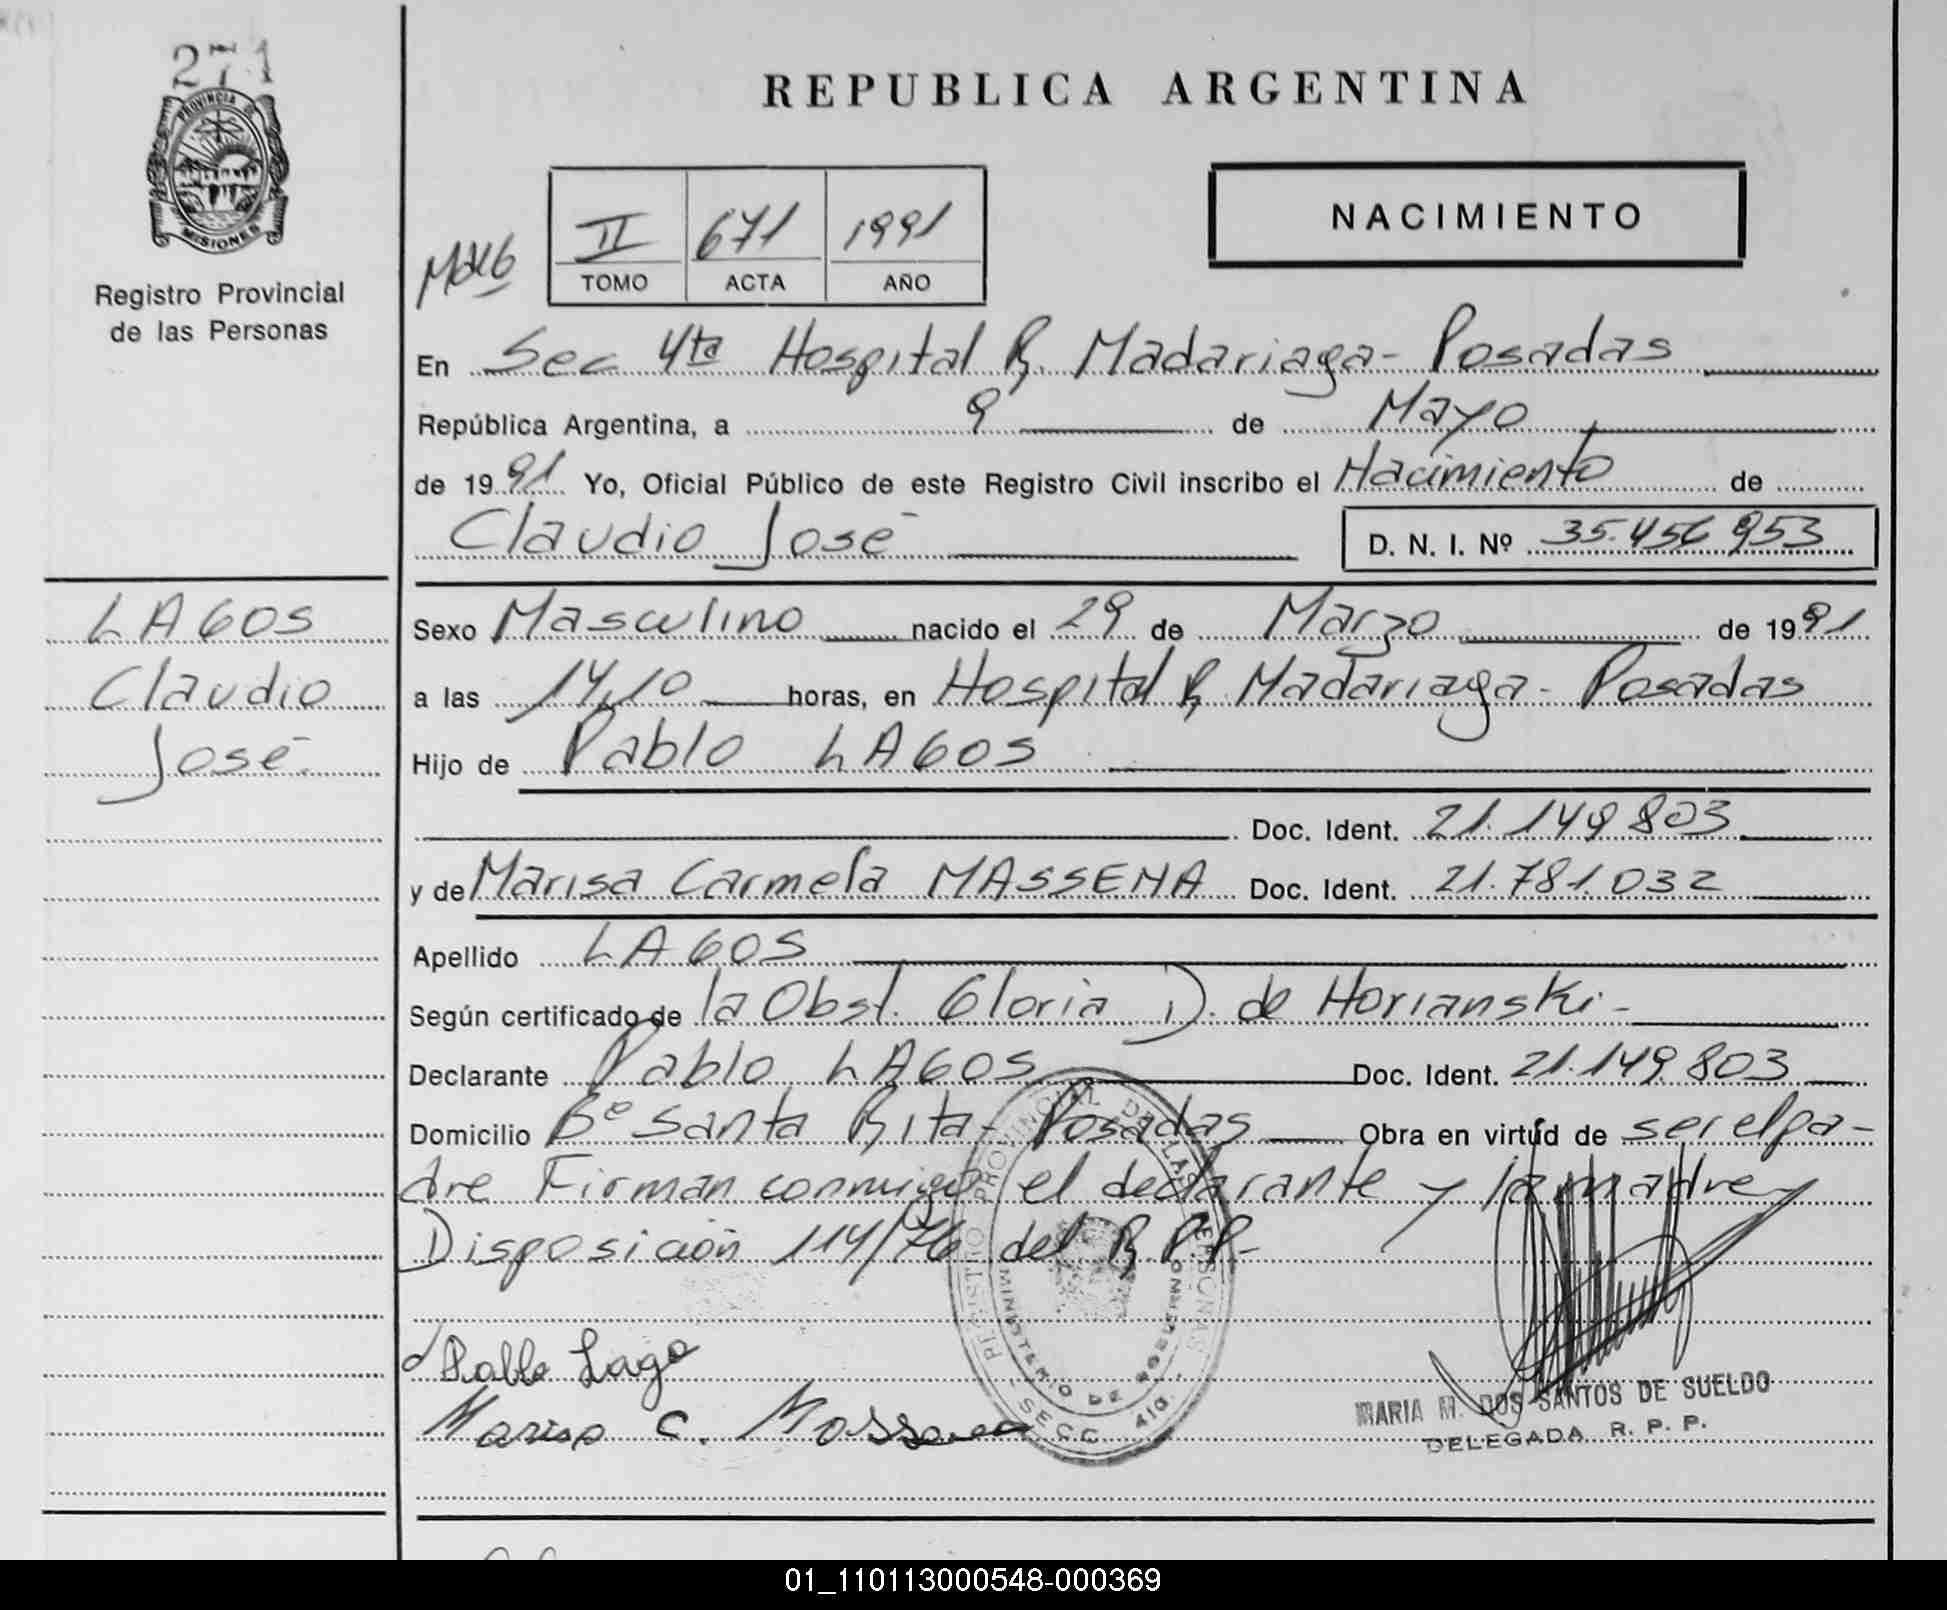 271
PROVINCIA DE
MISIONES
Registro Provincial
de las Personas
REPUBLICA ARGENTINA
II 671 1991
TOMO ACTA AÑO
NACIMIENTO
En Sec 4ta Hospital R. Madariaga - Posadas
República Argentina, a 9 de Mayo
de 1991 Yo, Oficial Público de este Registro Civil inscribo el Nacimiento de
Claudio José D. N. I. Nº 35.456 953
LAGOS
Claudio
José
Sexo Masculino nacido el 29 de Marzo de 1991
a las 14,10 horas, en Hospital R. Madariaga - Posadas
Hijo de Pablo LAGOS
Doc. Ident. 21.149 803
y de Marisa Carmela MASSENA Doc. Ident. 21.781.032
Apellido LAGOS
Según certificado de la Obst. Gloria D. de Horianski -
Declarante Pablo LAGOS Doc. Ident. 21.149.803
Domicilio Bº Santa Rita - Posadas Obra en virtud de ser el pa-
dre Firman conmigo el declarante y la madre
Disposición 114/76 del R.P.P-
REGISTRO PROVINCIAL DE LAS PERSONAS
MINISTERIO DE GOBIERNO
- SECC. 4ta. -
Pablo Lago
Marisa C. Massena
MARIA M. DOS SANTOS DE SUELDO
DELEGADA R. P. P.
01_110113000548-000369